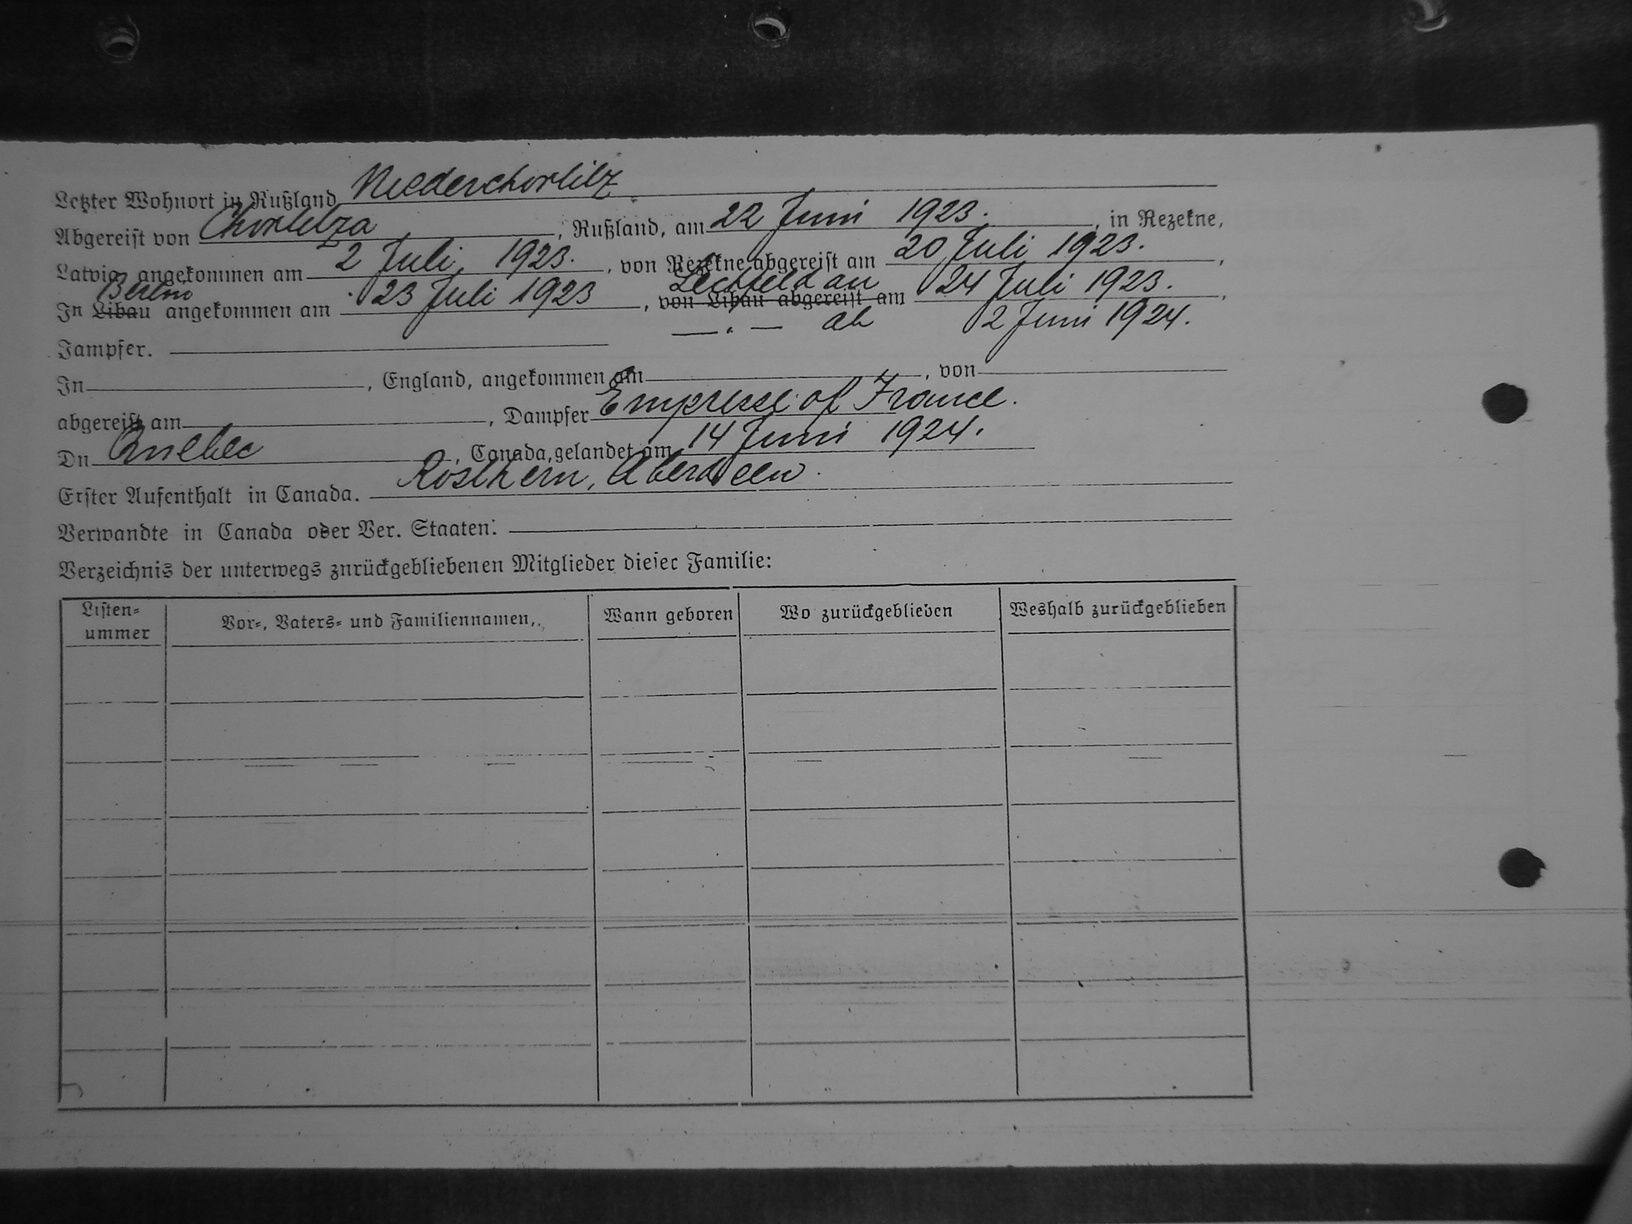 Letzter Wohnort in Rußland Niederchortitz
Abgereist von Chortitza, Rußland, am 22 Juni 1923., in Rezekne,
Latvia, angekommen am 2 Juli, 1923., von Rezekne abgereist am 20 Juli 1923.,
Berlin Lechfeld an
In Libau angekommen am 23 Juli 1923, von Libau abgereist am 24 Juli 1923.,
— " — ab 2 Juni 1924.
Dampfer.
In, England, angekommen am, von
abgereist am, Dampfer Empresse of France.
Dn Quebec, Canada, gelandet am 14 Juni 1924.
Erster Aufenthalt in Canada. Rosthern, Aberdeen.
Verwandte in Canada oder Ver. Staaten:
Verzeichnis der unterwegs znrückgebliebenen Mitglieder dieser Familie:
Listen=
ummer
Vor=, Vaters= und Familiennamen,.
Wann geboren
Wo zurückgeblieben
Weshalb zurückgeblieben